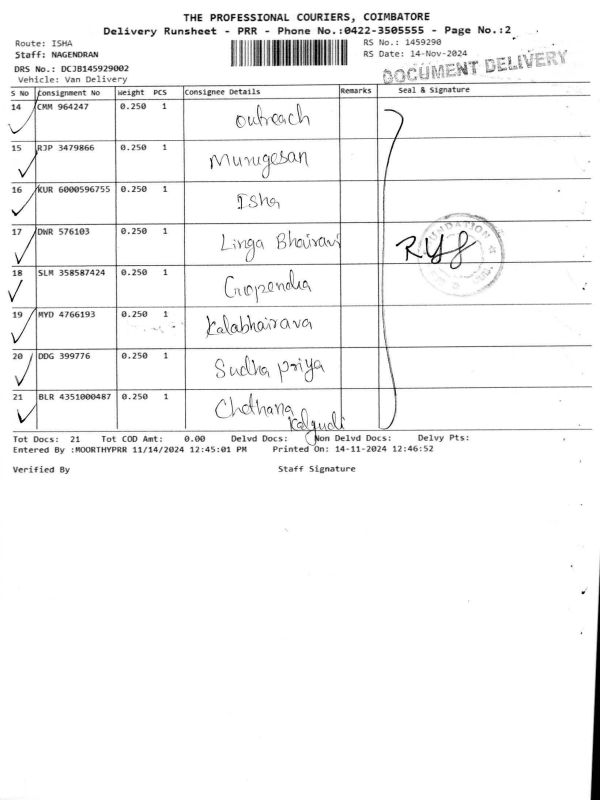 THE PROFESSIONAL COURIERS, COIMBATORE
Delivery Runsheet - PRR - Phone No.:0422-3505555 - Page No.:2
Route: ISHA RS No.: 1459290
Staff: NAGENDRAN RS Date: 14-Nov-2024
DRS No.: DCJB145929002 DOCUMENT DELIVERY
Vehicle: Van Delivery
S No Consignment No Weight PCS Consignee Details Remarks Seal & Signature
14 CMM 964247 0.250 1 Outreach
15 RJP 3479866 0.250 1 Murugesan
16 KUR 6000596755 0.250 1 Isha
17 DWR 576103 0.250 1 Linga Bhairavi
18 SLM 358587424 0.250 1 Gopendha
19 MYD 4766193 0.250 1 Kalabhairava
20 DDG 399776 0.250 1 Sudha Priya
21 BLR 4351000487 0.250 1 Chethana
Kalgudi
Tot Docs: 21 Tot COD Amt: 0.00 Delvd Docs: Non Delvd Docs: Delvy Pts:
Entered By :MOORTHYPRR 11/14/2024 12:45:01 PM Printed On: 14-11-2024 12:46:52
Verified By Staff Signature